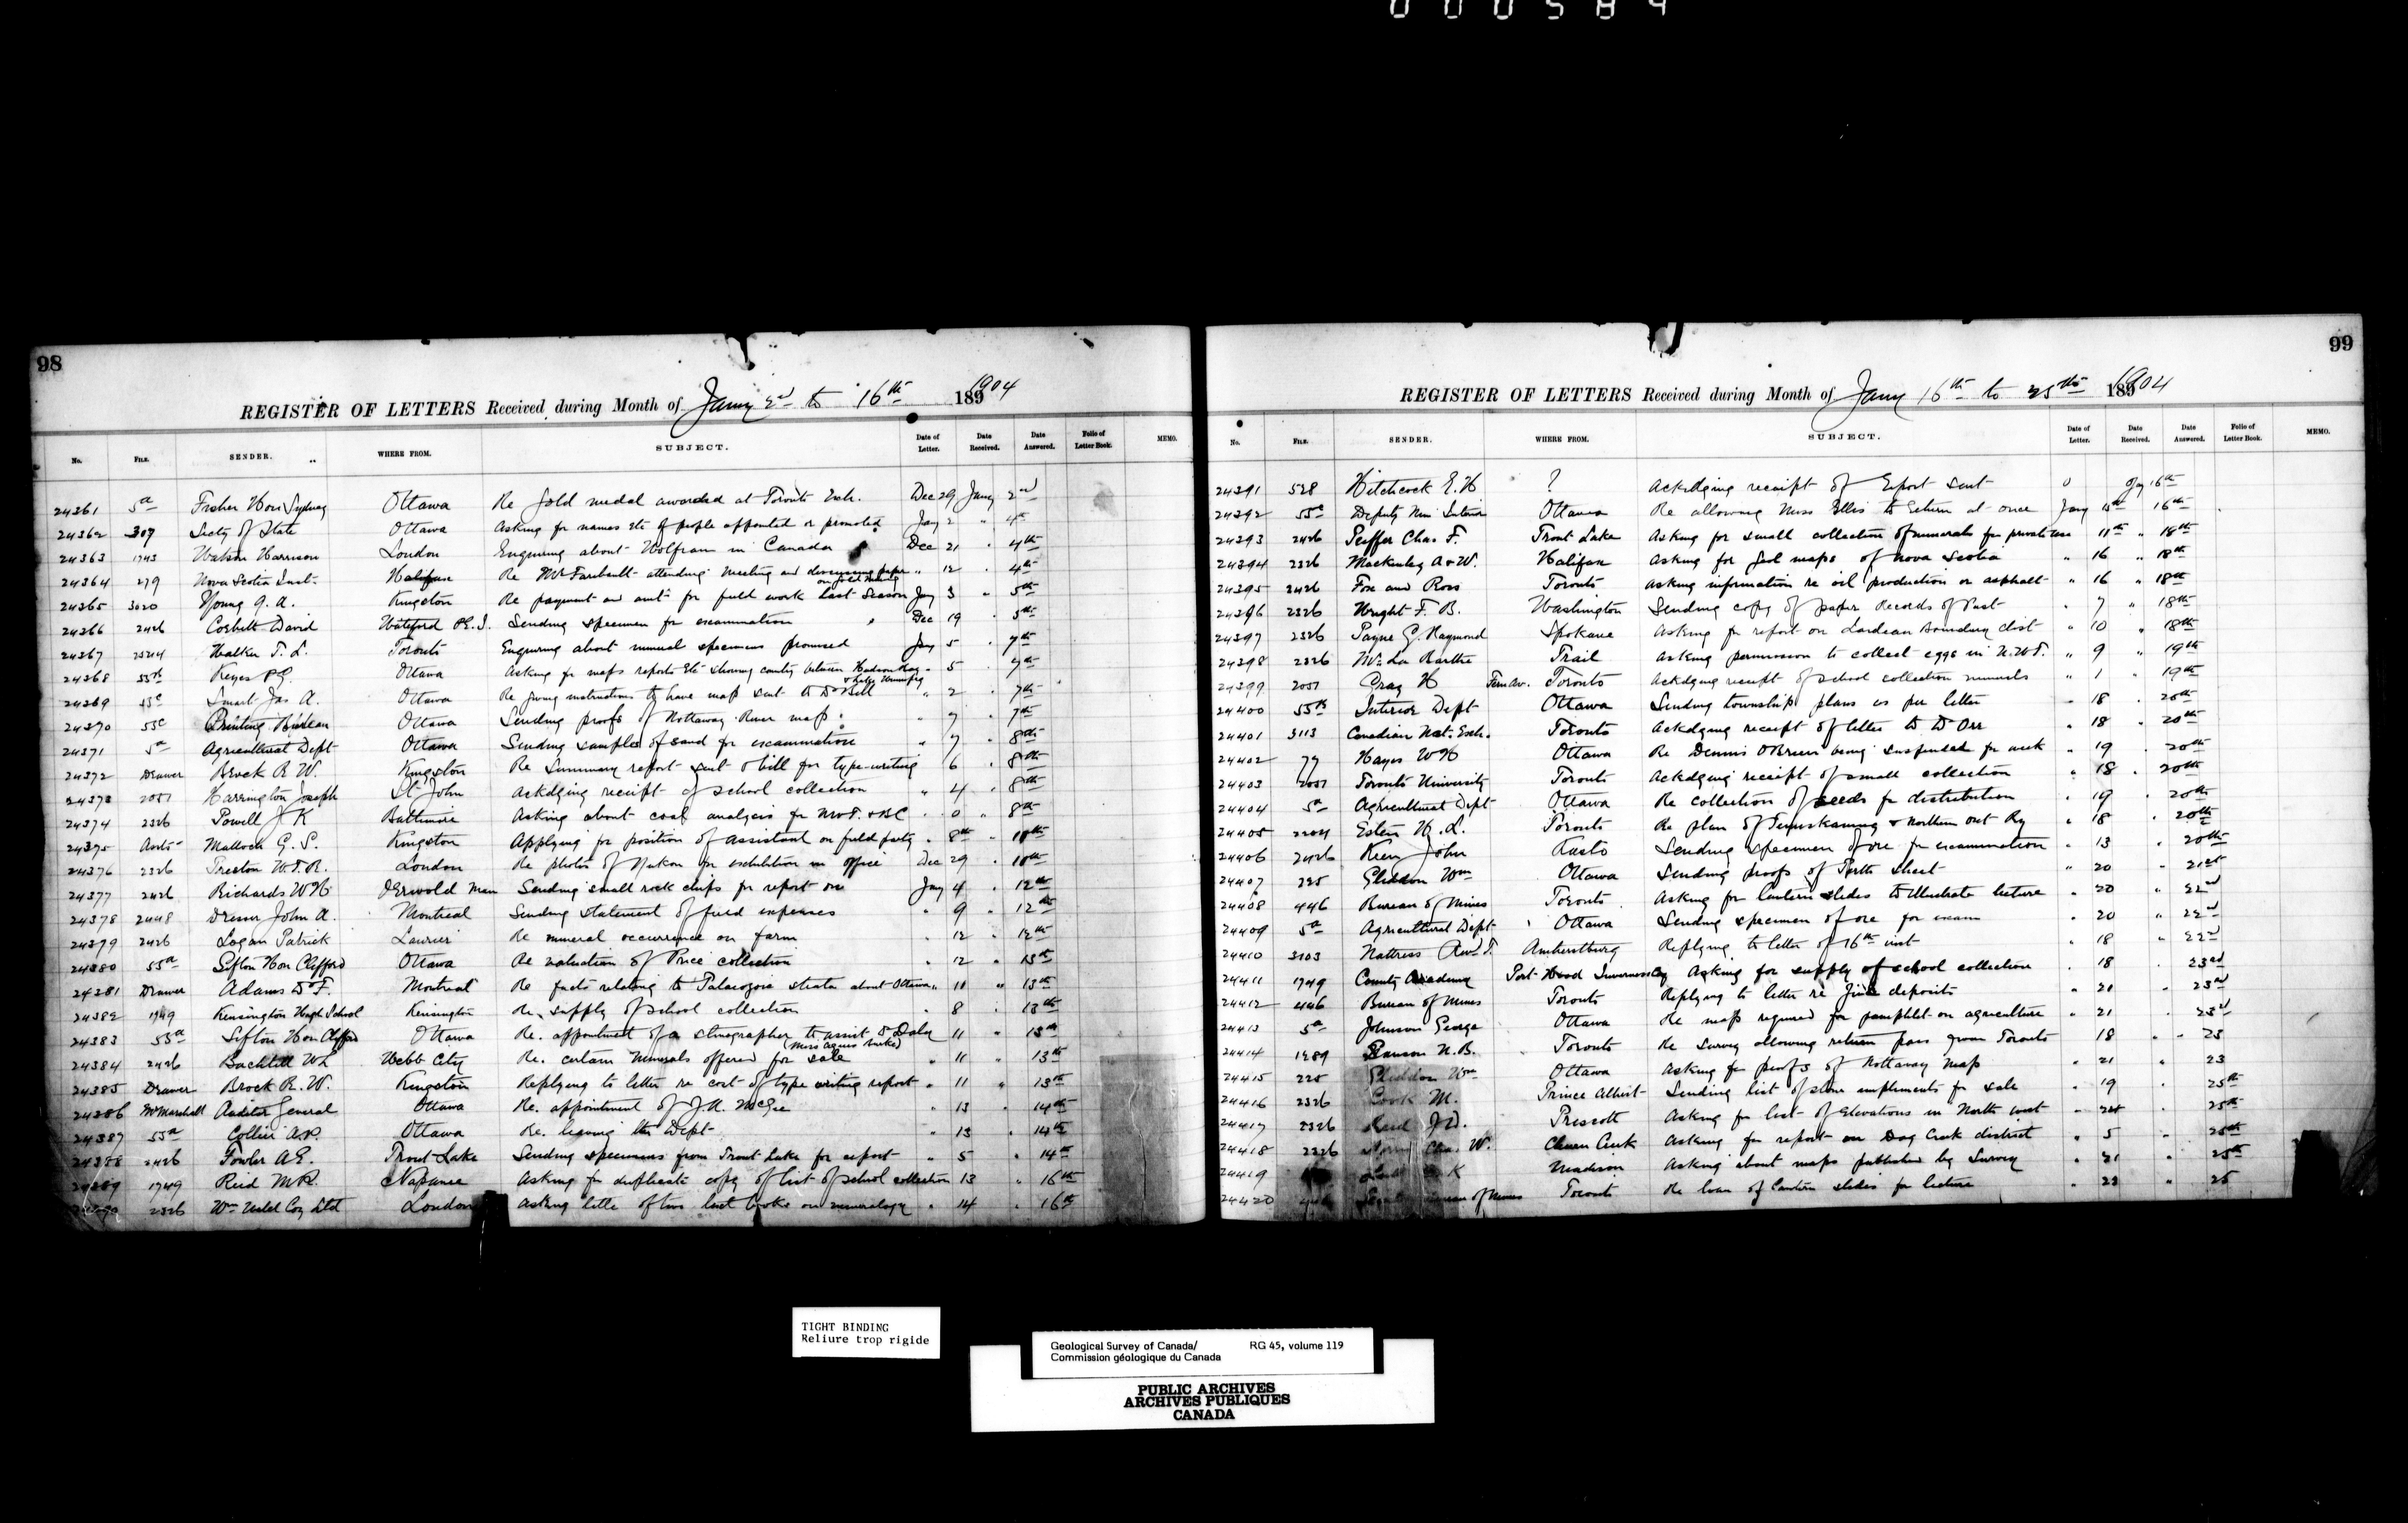 000589
98
REGISTER OF LETTERS Received during Month of Jany 2nd to 16th 1904
No. FILE. SENDER. WHERE FROM. SUBJECT. Date of Letter. Date Received. Date Answered. Folio of Letter Book. MEMO.
24361 5a Fisher Hon Sydney Ottawa Re gold medal awarded at Toronto Exh. Dec 29 Jany 2nd
24362 307 Secty of State Ottawa Asking for names etc of people appointed or promoted Jany 2 " 4th
24363 1743 Watson Harrison London Enquiring about Wolfram in Canada Dec 21 " 4th
24364 279 Nova Scotia Inst. Halifax Re Mr Faribault attending meeting and discussing paper on gold mining " 12 " 4th
24365 3020 Young G. A. Kingston Re payment on amt for field work last season Jany 3 " 5th
24366 2426 Corbett David Waterford P.E.I. Sending specimen for examination Dec 19 " 5th
24367 Walker T. L. Toronto Enquiring about mineral specimens promised Jany 5 " 7th
24368 55b Keyes P.G. Ottawa Asking for maps reports etc showing country between Hudson Bay & Lake Winnipeg " 5 " 7th
24369 55c Smart Jas A. Ottawa Re giving instructions to have map sent to Dr Bell " 2 " 7th
24370 55c Printing Bureau Ottawa Sending proofs of Nottaway River map " 7 " 7th
24371 5a Agricultural Dept Ottawa Sending samples of sand for examination " 7 " 8th
24372 Drawer Brock R. W. Kingston Re Summary report sent & bill for type-writing " 6 " 8th
24373 2051 Harrington Joseph St John Ackdging receipt of school collection " 4 " 8th
24374 2326 Powell J K Baltimore Asking about coal analysis for N.W.T. & B.C " 0 " 8th
24375 Malloch G. S. Kingston Applying for position of assistant on field party " 8th " 10th
24376 2326 Preston W.T.R. London Re photos of Yukon for exhibition in office Dec 29 " 10th
24377 2426 Richards W H Griswold Man Sending small rock chips for report on Jany 4 " 12th
24378 2448 Dresser John A. Montreal Sending statement of field expenses " 9 " 12th
24379 2426 Logan Patrick Laurier Re mineral occurrence on farm " 12 " 12th
24380 55a Sifton Hon Clifford Ottawa Re valuation of Price collection " 12 " 13th
24381 Drawer Adams Dr F. Montreal Re facts relating to Palaeozoic strata about Ottawa " 11 " 13th
24382 1749 Kensington High School Kensington Re. supply of school collection " 8 " 13th
24383 55a Sifton Hon Clifford Ottawa Re. appointment of a stenographer to assist Dr Daly " 11 " 13th
24384 2426 Bachtell W L Webb City Re. certain minerals offered for sale " 11 " 13th
24385 Drawer Brock R. W. Kingston Replying to letter re cost of type writing report " 11 " 13th
24386 Mr Marshall Auditor General Ottawa Re. appointment of J.A. McGee " 13 " 14th
24387 55a Collier A.P. Ottawa Re. leaving the Dept " 13 " 14th
24388 2426 Fowler A.E. Trout Lake Sending specimens from Trout Lake for report " 5 " 14th
24389 1749 Reid M.R. Napanee Asking for duplicate copy of list of school collection 13 " 16th
24390 2326 Wm Weld Coy Ltd London Asking title of two best books on mineralogy " 14 " 16th
99
REGISTER OF LETTERS Received during Month of Jany 16th to 25th 1904
No. FILE. SENDER. WHERE FROM. SUBJECT. Date of Letter. Date Received. Date Answered. Folio of Letter Book. MEMO.
24391 528 Hitchcock E. H ? Ackdging receipt of Report sent 0 Jany 16th
24392 55c Deputy Min Interior Ottawa Re allowing Miss Ellis to return at once Jany 16th
24393 2426 Peiffer Chas. F. Trout Lake Asking for small collection of minerals for private use 11th " 18th
24394 2326 Mackinlay A & W. Halifax Asking for geol maps of Nova Scotia " 16 " 18th
24395 2426 Fox and Ross Toronto Asking information re oil production or asphalt " 16 " 18th
24396 2326 Wright F. B. Washington Sending copy of paper Records of Past " 7 " 18th
24397 2326 Payne G. Raymond Spokane Asking for report on Lardeau Boundary dist " 10 " 18th
24398 2326 Trail Asking permission to collect eggs in N.W.T. " 9 " 19th
24399 2051 Gray H Fern Av. Toronto Ackdging receipt of school collection minerals " 1 " 19th
24400 55b Interior Dept Ottawa Sending township plans as per letter " 18 " 20th
24401 3113 Canadian Nat. Exh. Toronto Ackdging receipt of letter to Dr Orr " 18 " 20th
24402 79 Hayes W H Ottawa Re Dennis O'Brien being suspended for week " 19 " 20th
24403 2051 Toronto University Toronto Ackdging receipt of small collection " 18 " 20th
24404 5a Agricultural Dept Ottawa Re collection of seeds for distribution " 19 " 20th
24405 2204 Esten H. L. Toronto Re plan of Temiskaming & Northern Ont Ry " 18 " 20th
24406 2426 Keen John Kaslo Sending specimen of ore for examination " 13 " 20th
24407 225 Gliddon Wm Ottawa Sending proofs of Perth sheet " 20 " 21st
24408 446 Bureau of Mines Toronto Asking for lantern slides to illustrate lecture " 20 " 22nd
24409 5a Agricultural Dept Ottawa Sending specimen of ore for exam " 20 " 22nd
24410 3103 Nattress Revd T. Amherstburg Replying to letter of 16th inst " 18 " 22nd
24411 1749 County Academy Port Hood Inverness Coy Asking for supply of school collection " 18 " 23rd
24412 446 Bureau of Mines Toronto Replying to letter re Zinc deposits " 21 " 23rd
24413 5a Johnson George Ottawa Re map required for pamphlet on agriculture " 21 " 23rd
24414 1289 N. B. Toronto Re Survey allowing return pass from Toronto " 18 " 23
24415 225 Gliddon Wm Ottawa Asking for proofs of Nottaway Map " 21 " 23
24416 2326 Cook M. Prince Albert Sending list of stone implements for sale " 19 " 25th
24417 2326 Reid J.D. Prescott Asking for list of Elevations in North West " 25th
24418 2326 Chas. W. Asking for report on Dog Creek district " 5 " 25th
24419 K Madison Asking about maps published by Survey " 21 " 25th
24420 Bureau of Mines Toronto Re loan of lantern slides for lecture " 23 " 25
TIGHT BINDING
Reliure trop rigide
Geological Survey of Canada/ RG 45, volume 119
Commission géologique du Canada
PUBLIC ARCHIVES
ARCHIVES PUBLIQUES
CANADA